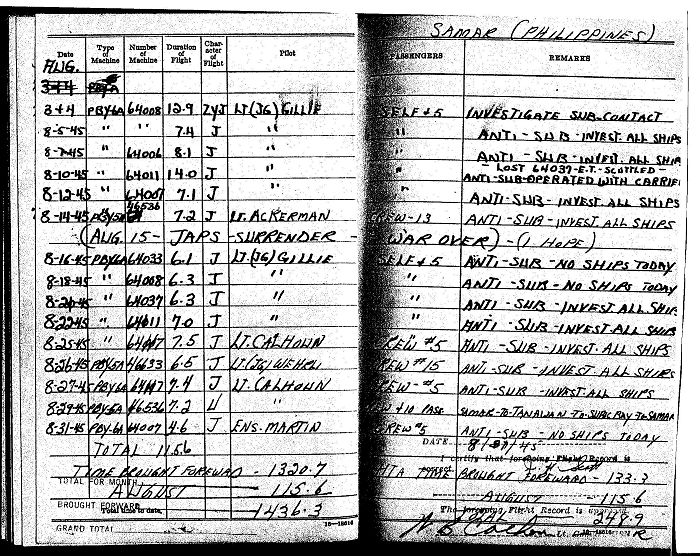 SAMAR (PHILIPPINES)
Date Type of Machine Number of Machine Duration of Flight Character of Flight Pilot PASSENGERS REMARKS
AUG.
3+4 PBY6A
3+4 PBY6A 64008 12.9 ZYJ LT(JG) GILLIE SELF+5 INVESTIGATE SUB-CONTACT
8-5-45 " " 7.4 J " " ANTI-SUB-INVEST. ALL SHIPS
8-7-45 " 64006 8.1 J " " ANTI-SUB-INVEST. ALL SHIP
- LOST 64037-E.T.-SCUTTLED -
8-10-45 " 64011 14.0 J " " ANTI-SUB-OPERATED WITH CARRIE
8-12-45 " 64007 7.1 J " " ANTI-SUB-INVEST ALL SHIPS
8-14-45 PBY5A 46536 7.2 J LT. ACKERMAN CREW-13 ANTI-SUB-INVEST. ALL SHIPS
(AUG 15- JAPS -SURRENDER - WAR OVER) - (I HOPE)
8-16-45 PBY6A 64033 6.1 J LT(JG) GILLIE SELF+5 ANTI-SUB-NO SHIPS TODAY
8-18-45 " 64008 6.3 J " " ANTI-SUB-NO SHIPS TODAY
8-20-45 " 64037 6.3 J " " ANTI-SUB-INVEST ALL SHIP
8-22-45 " 64011 7.0 J " ANTI-SUB-INVEST ALL SHIP
8-25-45 " 7.5 J LT. CALHOUN CREW #5 ANTI-SUB-INVEST. ALL SHIPS
8-26-45 PBY5A 46633 6.5 J LT(JG) CREW #15 ANTI-SUB-INVEST. ALL SHIPS
8-27-45 PBY6A 7.4 J LT. CALHOUN CREW-#5 ANTI-SUB-INVEST. ALL SHIPS
8-29-45 PBY-5A 46536 7.2 " +10 PASS SAMAR-TO-TANAUAN-TO-SUBIC BAY-TO-SAMAR
8-31-45 PBY-6A 64007 4.6 J ENS. MARTIN CREW #5 ANTI-SUB-NO SHIPS TODAY
TOTAL 115.6
DATE 8/31/45
I certify that foregoing Flight Record is
TIME BROUGHT FOREWARD - 1320.7
TIME BROUGHT FOREWARD - 133.3
TOTAL FOR MONTH
AUGUST 115.6
AUGUST - 115.6
BROUGHT FORWARD
Total time to date,
1436.3
The foregoing Flight Record is approved
248.9
GRAND TOTAL